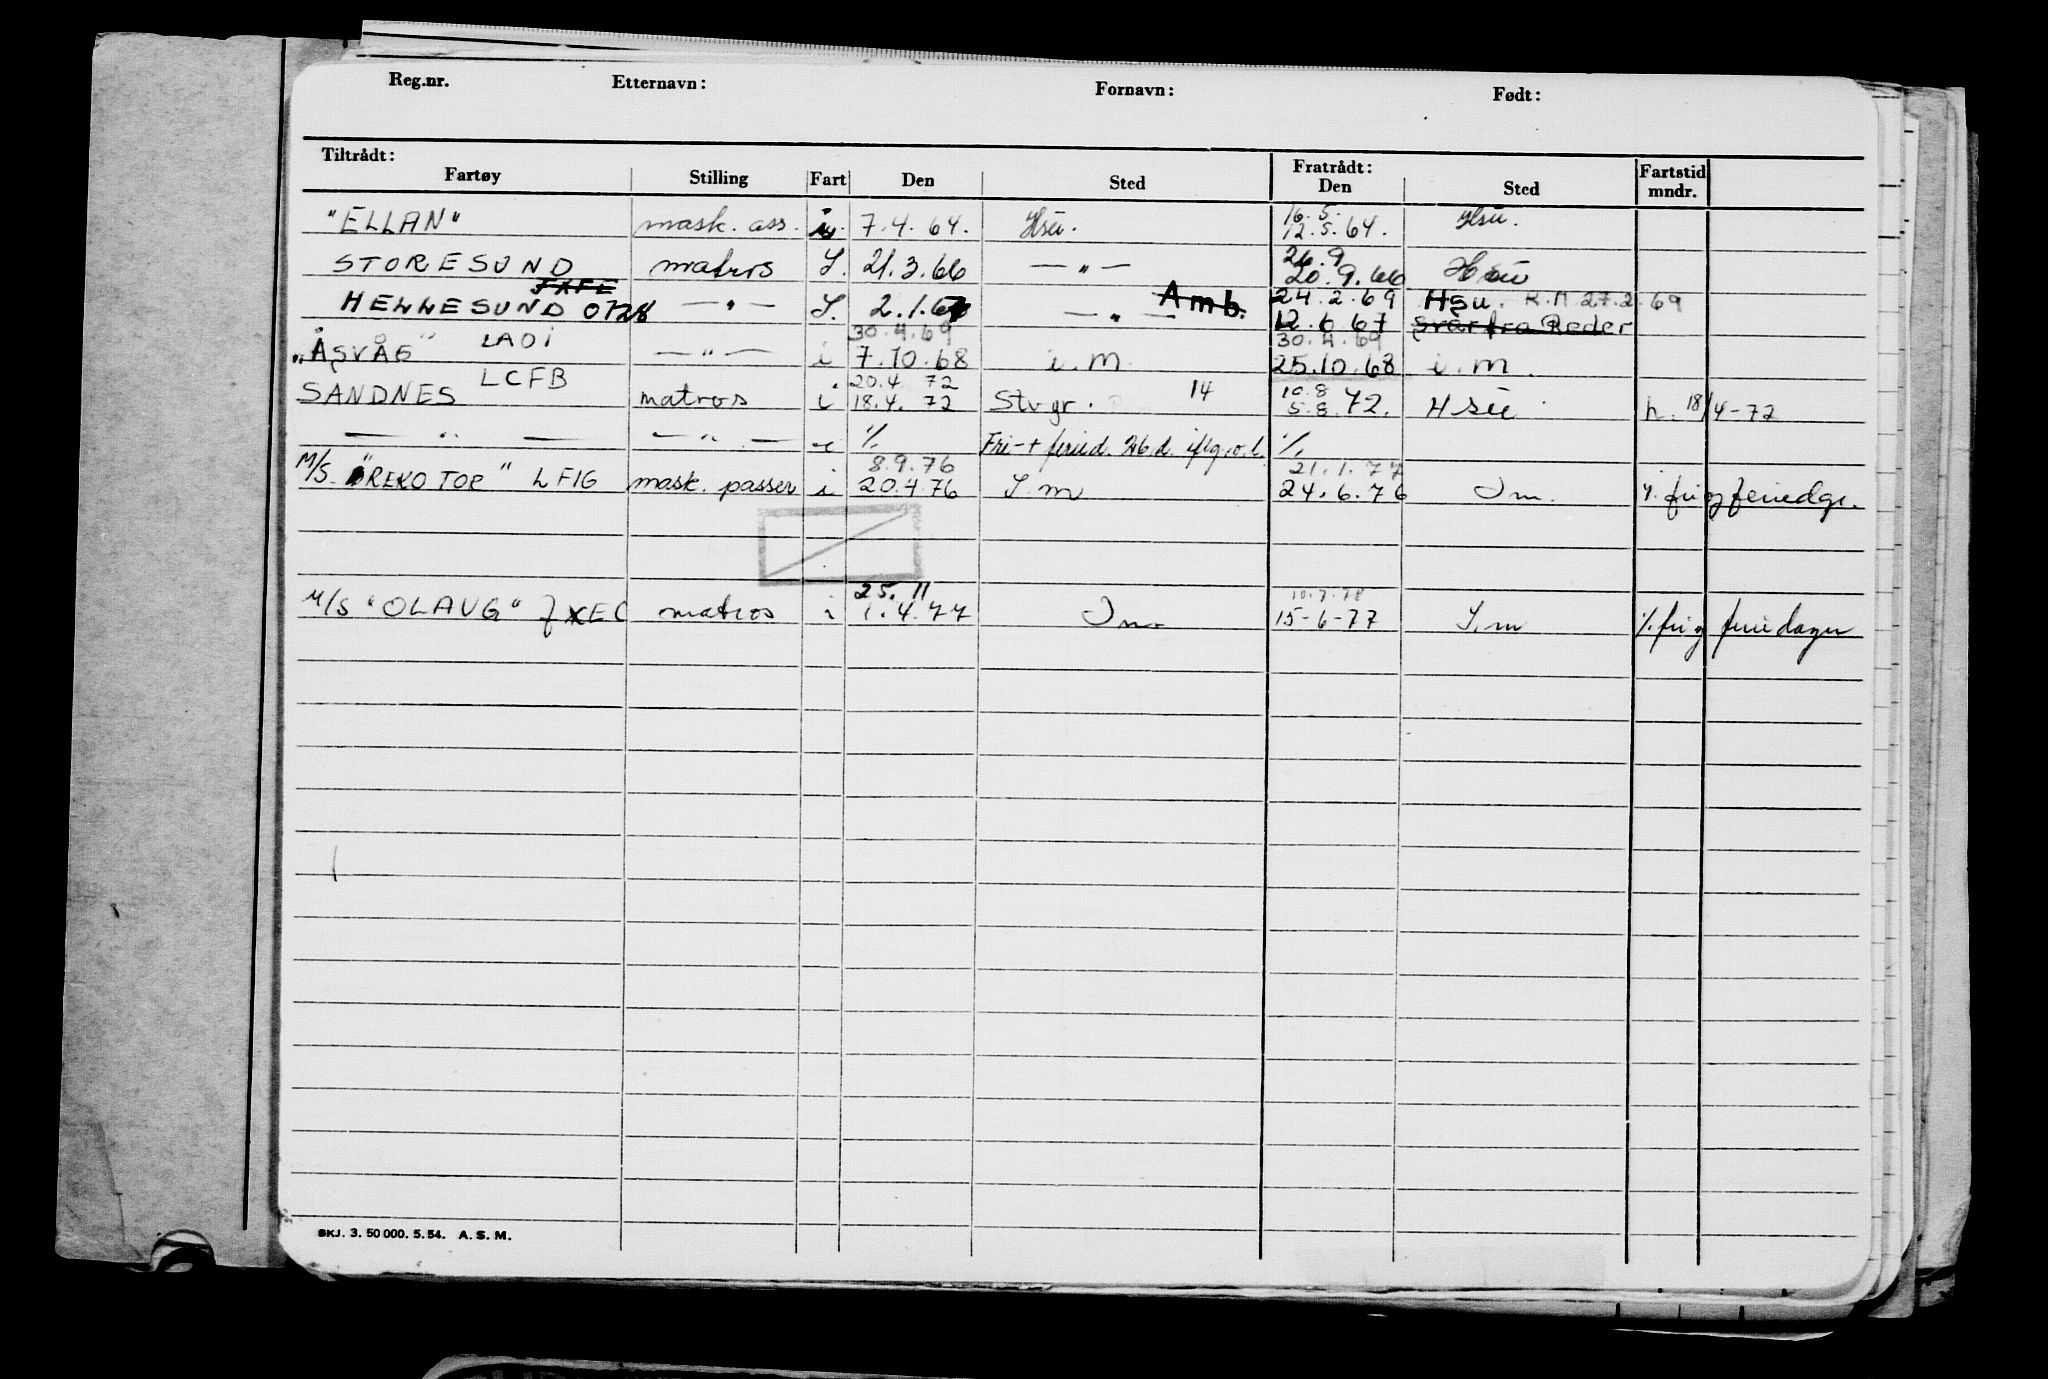 Reg.nr. Etternavn: Fornavn: Født:
Tiltrådt: Fratrådt:
Fartøy Stilling Fart Den Sted Den Sted Fartstid mndr.
16.5.
"ELLAN" mask. ass. 7.4.64. Hsu. 12.5.64. Hsu.
26.9
STORESUND matros S. 21.3.66 — " — 20.9.66 Hsu
Amb. 24.2.69 Hsu. R.M. 27.2.69
HELLESUND — " — S. 2.1.67 — " — 12.6.67 svar fra Reder
30.4.69 30.4.69
"ÅSVÅG" LAOI — " — i 7.10.68 i.M. 25.10.68 i.M.
20.4 72 14 10.8
SANDNES LCFB matros i 18.4. 72 Stvgr. 5.8 72. Hsu 18/4-72
— " — — " — i %. Fri- + feried. %.
8.9.76 21.1.77
M/S "REKO TOR" LFIG mask. passer i 20.4 76 I.m 24.6.76 I m. %. fri og feriedgr.
25.11 10.7.78
M/S "OLAUG" JXEC matros i 1.4.77 I m. 15-6-77 I.m %. fri og feriedager
SKJ. 3. 50 000. 5. 54. A. S. M.